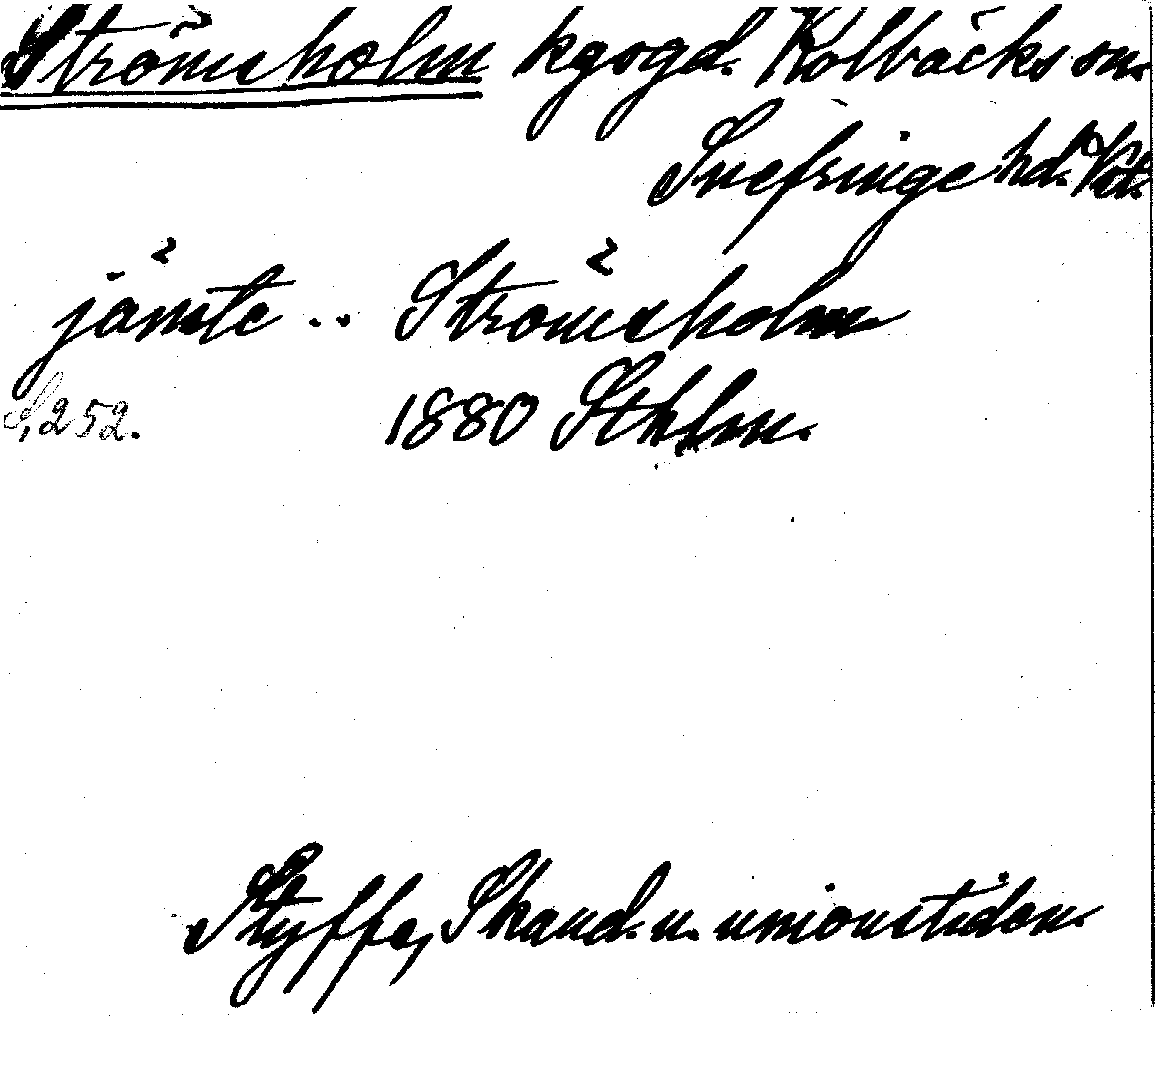 Strömsholm kgsgd. Kolbäcks sn.
Snefringe hd. Vstm.
jämte .. Strömsholm
S, 252. 1880 Sthlm.
Styffe, Skand. u. unionstiden.